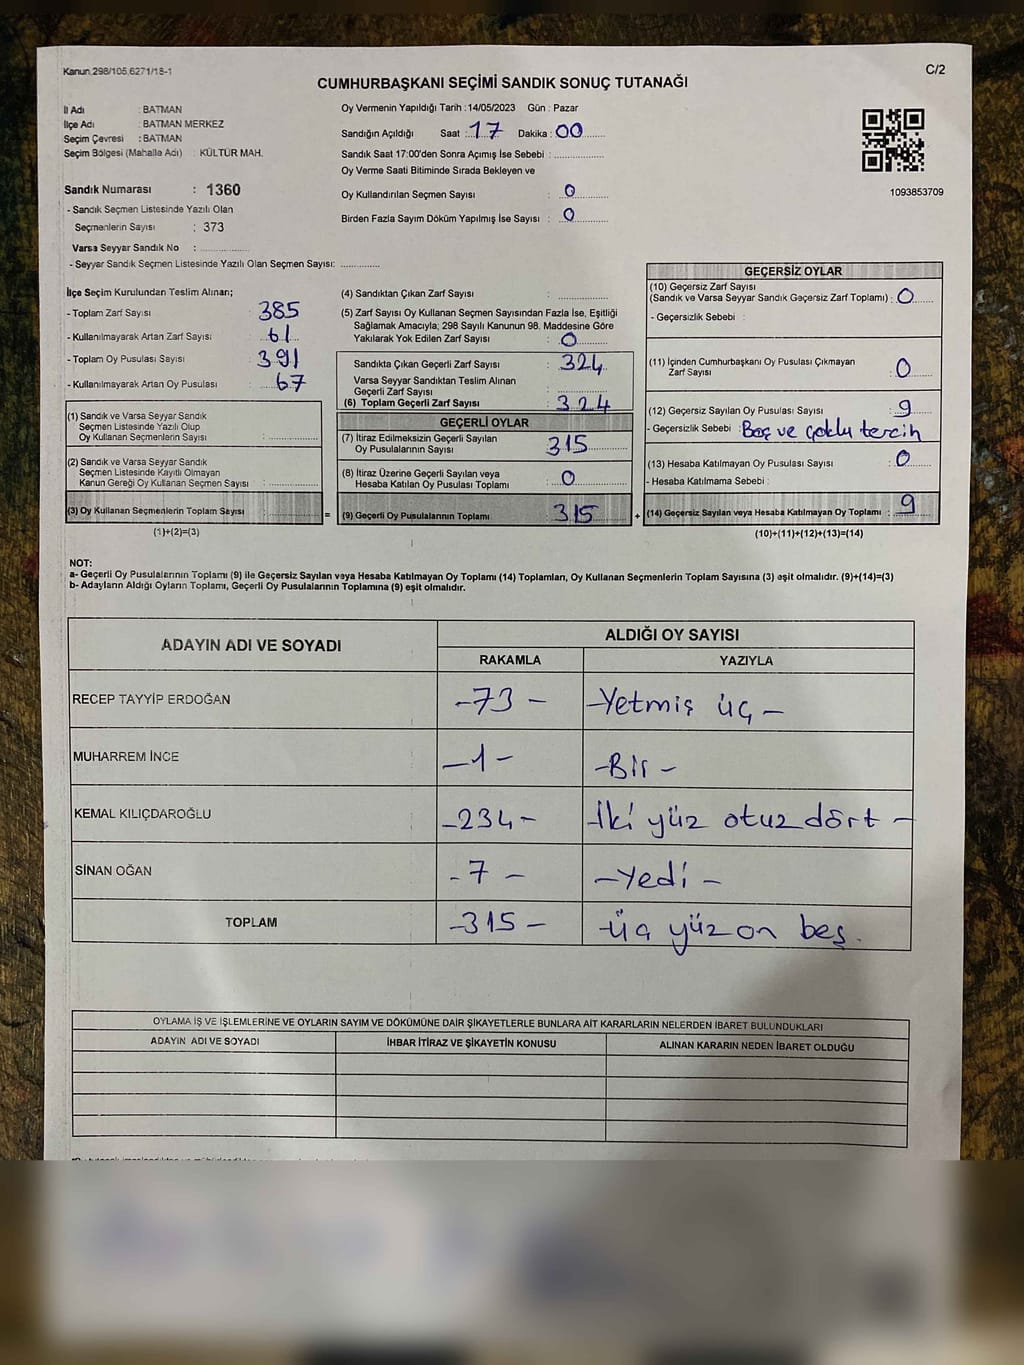 Kanun,298/105,6271/18-1
C/2
CUMHURBAŞKANI SEÇİMİ SANDIK SONUÇ TUTANAĞI
İl Adı : BATMAN
İlçe Adı : BATMAN MERKEZ
Seçim Çevresi : BATMAN
Seçim Bölgesi (Mahalle Adı) : KÜLTÜR MAH.
Sandık Numarası : 1360
- Sandık Seçmen Listesinde Yazılı Olan
Seçmenlerin Sayısı : 373
Varsa Seyyar Sandık No : ..............
- Seyyar Sandık Seçmen Listesinde Yazılı Olan Seçmen Sayısı: ............
Oy Vermenin Yapıldığı Tarih : 14/05/2023 Gün : Pazar
Sandığın Açıldığı Saat : 17 Dakika : 00
Sandık Saat 17:00'den Sonra Açımış İse Sebebi : ..............
Oy Verme Saati Bitiminde Sırada Bekleyen ve
Oy Kullandırılan Seçmen Sayısı : 0
Birden Fazla Sayım Döküm Yapılmış İse Sayısı : 0
1093853709
İlçe Seçim Kurulundan Teslim Alınan;
- Toplam Zarf Sayısı : 385
- Kullanılmayarak Artan Zarf Sayısı : 61
- Toplam Oy Pusulası Sayısı : 391
- Kullanılmayarak Artan Oy Pusulası : 67
(1) Sandık ve Varsa Seyyar Sandık
Seçmen Listesinde Yazılı Olup
Oy Kullanan Seçmenlerin Sayısı : ..............
(2) Sandık ve Varsa Seyyar Sandık
Seçmen Listesinde Kayıtlı Olmayan
Kanun Gereği Oy Kullanan Seçmen Sayısı : ..............
(3) Oy Kullanan Seçmenlerin Toplam Sayısı : ..............
(1)+(2)=(3)
=
(4) Sandıktan Çıkan Zarf Sayısı : ..............
(5) Zarf Sayısı Oy Kullanan Seçmen Sayısından Fazla İse, Eşitliği
Sağlamak Amacıyla; 298 Sayılı Kanunun 98. Maddesine Göre
Yakılarak Yok Edilen Zarf Sayısı : 0
Sandıkta Çıkan Geçerli Zarf Sayısı : 324
Varsa Seyyar Sandıktan Teslim Alınan
Geçerli Zarf Sayısı : ..............
(6) Toplam Geçerli Zarf Sayısı : 324
GEÇERLİ OYLAR
(7) İtiraz Edilmeksizin Geçerli Sayılan
Oy Pusulalarının Sayısı : 315
(8) İtiraz Üzerine Geçerli Sayılan veya
Hesaba Katılan Oy Pusulası Toplamı : 0
(9) Geçerli Oy Pusulalarının Toplamı : 315
+
GEÇERSİZ OYLAR
(10) Geçersiz Zarf Sayısı
(Sandık ve Varsa Seyyar Sandık Geçersiz Zarf Toplamı) : 0
- Geçersizlik Sebebi :
(11) İçinden Cumhurbaşkanı Oy Pusulası Çıkmayan
Zarf Sayısı : 0
(12) Geçersiz Sayılan Oy Pusulası Sayısı : 9
- Geçersizlik Sebebi : Boş ve çoklu tercih
(13) Hesaba Katılmayan Oy Pusulası Sayısı : 0
- Hesaba Katılmama Sebebi :
(14) Geçersiz Sayılan veya Hesaba Katılmayan Oy Toplamı : 9
(10)+(11)+(12)+(13)=(14)
NOT:
a- Geçerli Oy Pusulalarının Toplamı (9) ile Geçersiz Sayılan veya Hesaba Katılmayan Oy Toplamı (14) Toplamları, Oy Kullanan Seçmenlerin Toplam Sayısına (3) eşit olmalıdır. (9)+(14)=(3)
b- Adayların Aldığı Oyların Toplamı, Geçerli Oy Pusulalarının Toplamına (9) eşit olmalıdır.
ADAYIN ADI VE SOYADI ALDIĞI OY SAYISI
RAKAMLA YAZIYLA
RECEP TAYYİP ERDOĞAN -73- -Yetmiş üç-
MUHARREM İNCE -1- -Bir-
KEMAL KILIÇDAROĞLU -234- -İki yüz otuz dört-
SİNAN OĞAN -7- -Yedi-
TOPLAM -315- -üç yüz on beş.
OYLAMA İŞ VE İŞLEMLERİNE VE OYLARIN SAYIM VE DÖKÜMÜNE DAİR ŞİKAYETLERLE BUNLARA AİT KARARLARIN NELERDEN İBARET BULUNDUKLARI
ADAYIN ADI VE SOYADI İHBAR İTİRAZ VE ŞİKAYETİN KONUSU ALINAN KARARIN NEDEN İBARET OLDUĞU